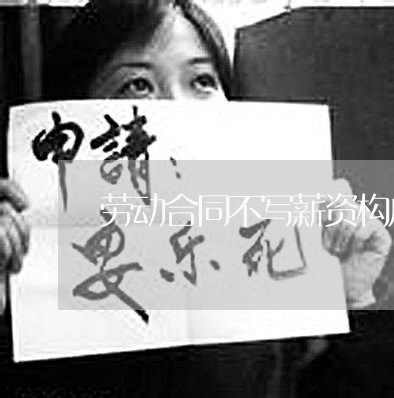 申請：
劳动合同不写薪资构
要乐死